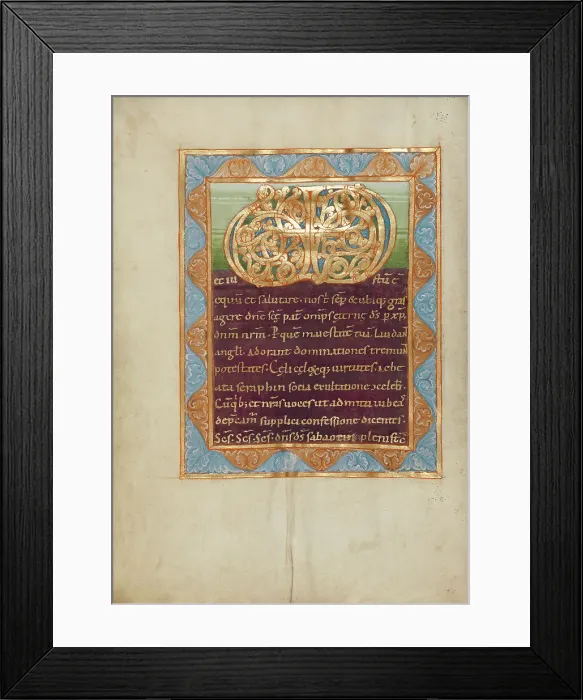 et iu stũ ẽ
equũ et salutare. nos t̃ sẽp & ubiq; gras
agere dñe scẽ pat̃ omips eterne d̃s p̃ xp̃m
dñm nr̃m. P quẽ maiestatẽ tuã laudant
angli. Adorant dominationes tremunt
potestates. Cęli cęlo℞q; uirtutes. ac be
ata seraphin socia exultatione ɔcelebr̃.
Cũ q'b; et nr̃as uoces ut admitti iubeas
dep̃camur supplici confessione dicentes.
Sc̃s. Sc̃s. Sc̃s. dñs d̃s sabaoth pleni st̃ cę